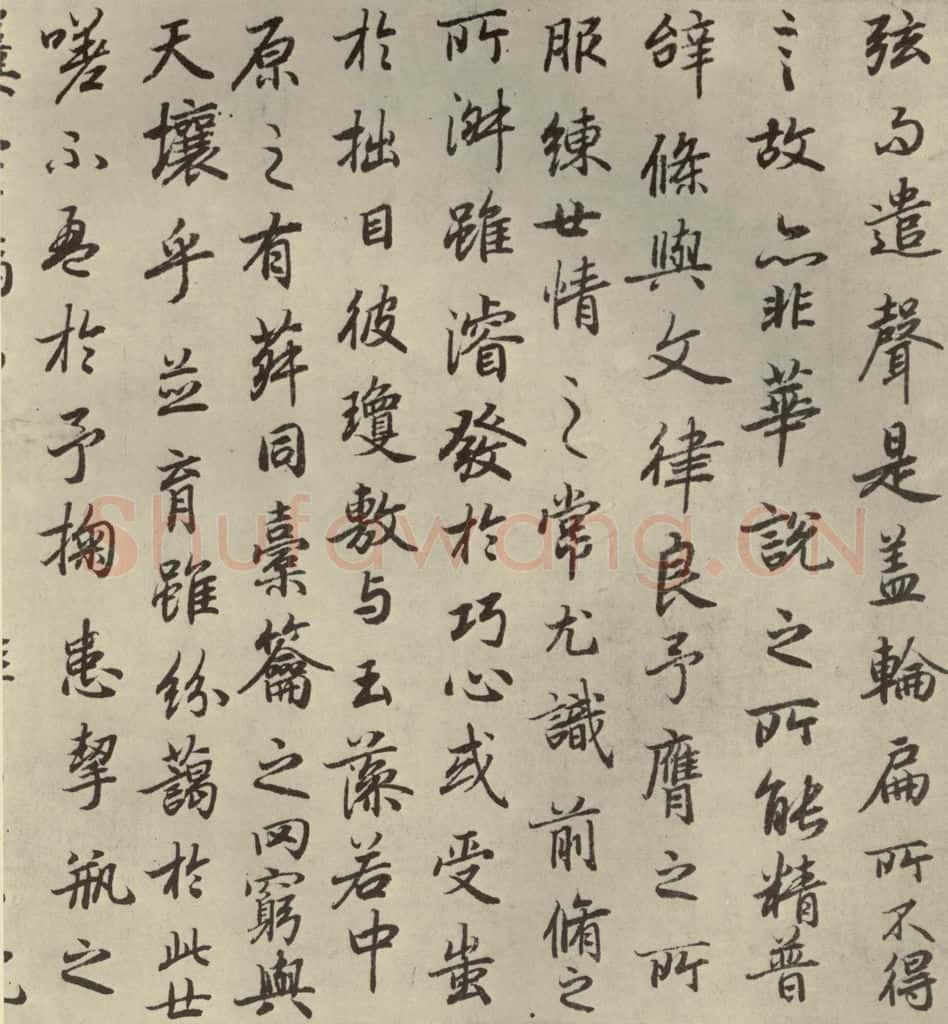 弦而遣聲是盖輪扁所不得
言故亦非華說之所能精普
辝條與文律良予膺之所
服練世情之常尤識前脩之
所淑雖濬發於巧心或受蚩
於拙目彼瓊敷与玉藻若中
原之有菽同橐籥之罔窮與
天壤乎並育雖紛藹於此世
嗟不盈於予掬患挈瓶之
Shufawang.CN